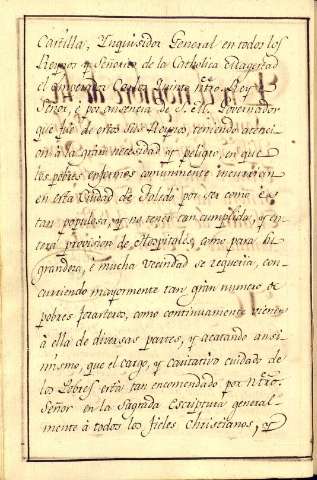 Castilla, Ynquisidor General en todos los
Reynos y Señorios de la Catholica Magestad
el Emperador Carlos Quinto Ntro. Rey y
Señor, é por ausencia de S. M. Governador
que fue de estos sus Reynos, teniendo atenci-
on á la gran necesidad y peligro, en que
los pobres enfermos comunmente incurrian
en esta Ciudad de Toledo por ser como es
tan populosa, y no tener tan cumplida, y en-
tera provision de Hospitales, como para su
grandeza, é mucha vecindad se requeria, con-
curriendo mayormente tan gran numero de
pobres forasteros, como continuamente vienen
á ella de diversas partes, y acatando ansi-
mismo, que el cargo, y caritativo cuidado de
los Pobres está tan encomendado por Ntro.
Señor en la Sagrada Escriptura general-
mente á todos los fieles Christianos, y